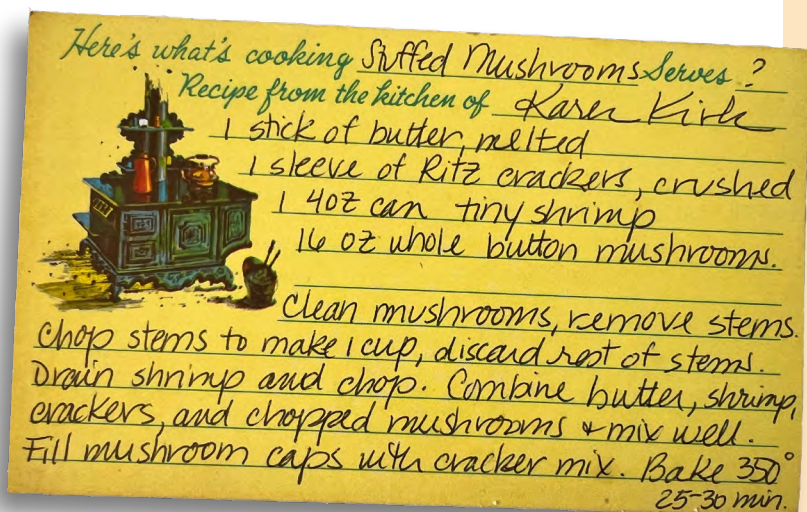 Here's what's cooking Stuffed Mushrooms Serves ?
Recipe from the kitchen of Karen Kirk
1 stick of butter, melted
1 sleeve of Ritz crackers, crushed
1 4oz can tiny shrimp
16 oz whole button mushrooms.
Clean mushrooms, remove stems.
Chop stems to make 1 cup, discard rest of stems.
Drain shrimp and chop. Combine butter, shrimp,
crackers, and chopped mushrooms + mix well.
Fill mushroom caps with cracker mix. Bake 350°
25-30 min.